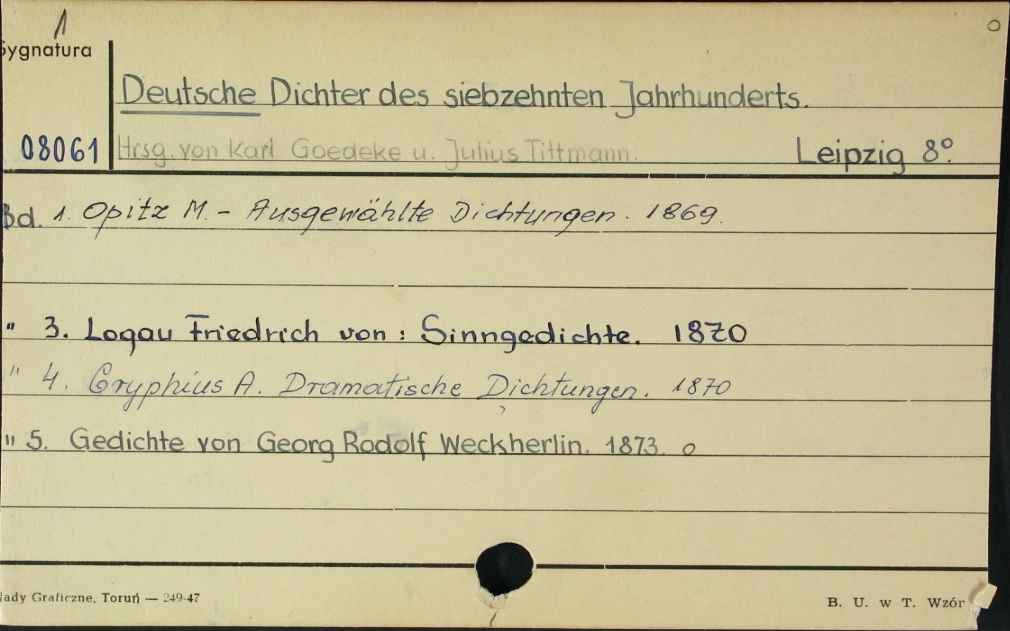 1
Sygnatura
Deutsche Dichter des siebzehnten Jahrhunderts.
08061 Hrsg. von Karl Goedeke u. Julius Tittmann. Leipzig 8°.
Bd. 1. Opitz M. - Ausgewählte Dichtungen. 1869.
" 3. Logau Friedrich von : Sinngedichte. 1870
" 4. Gryphius A. Dramatische Dichtungen. 1870
" 5. Gedichte von Georg Rodolf Weckherlin. 1873. o
łady Graficzne, Toruń — 249-47
B. U. w T. Wzór